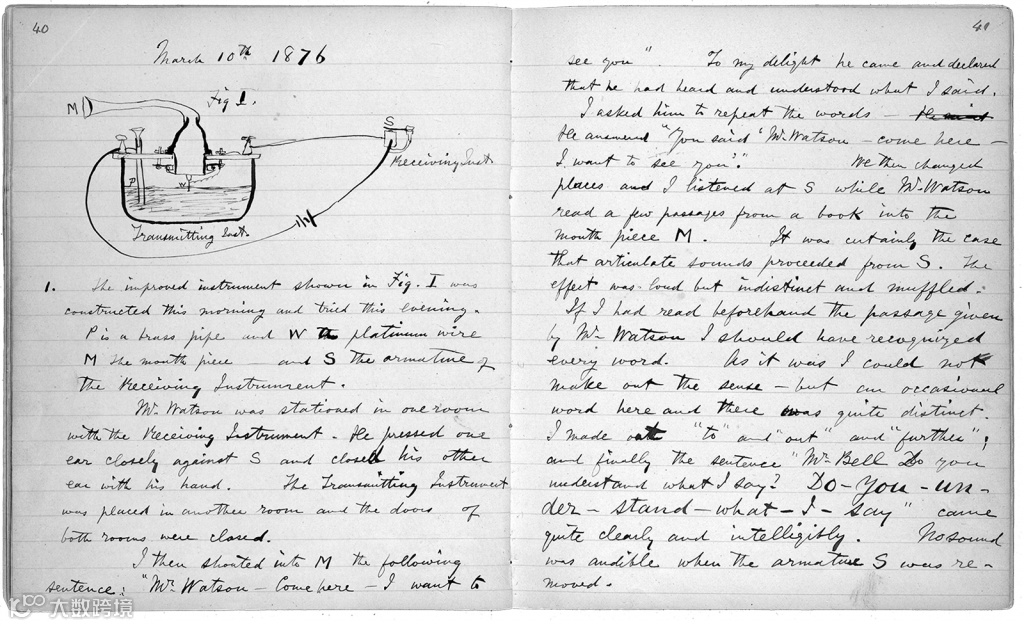 40
March 10th 1876
Fig 1.
M
S
Receiving Inst.
P
W
Transmitting Inst.
1. The improved instrument shown in Fig. I was
constructed this morning and tried this evening.
P is a brass pipe and W the platinum wire
M the mouth piece — and S the armature of
the Receiving Instrument.
Mr. Watson was stationed in one room
with the Receiving Instrument. He pressed one
ear closely against S and closed his other
ear with his hand. The Transmitting Instrument
was placed in another room and the doors of
both rooms were closed.
I then shouted into M the following
sentence: "Mr. Watson — Come here — I want to
41
see you". To my delight he came and declared
that he had heard and understood what I said.
I asked him to repeat the words —
He answered "You said 'Mr. Watson — come here —
I want to see you'." We then changed
places and I listened at S while Mr. Watson
read a few passages from a book into the
mouth piece M. It was certainly the case
that articulate sounds proceeded from S. The
effect was loud but indistinct and muffled.
If I had read beforehand the passage given
by Mr. Watson I should have recognized
every word. As it was I could not
make out the sense — but an occasional
word here and there was quite distinct.
I made out "to" and "out" and "further";
and finally the sentence "Mr. Bell Do you
understand what I say? Do — you — un —
der — stand — what — I — say" came
quite clearly and intelligibly. No sound
was audible when the armature S was re-
moved.
大数跨境